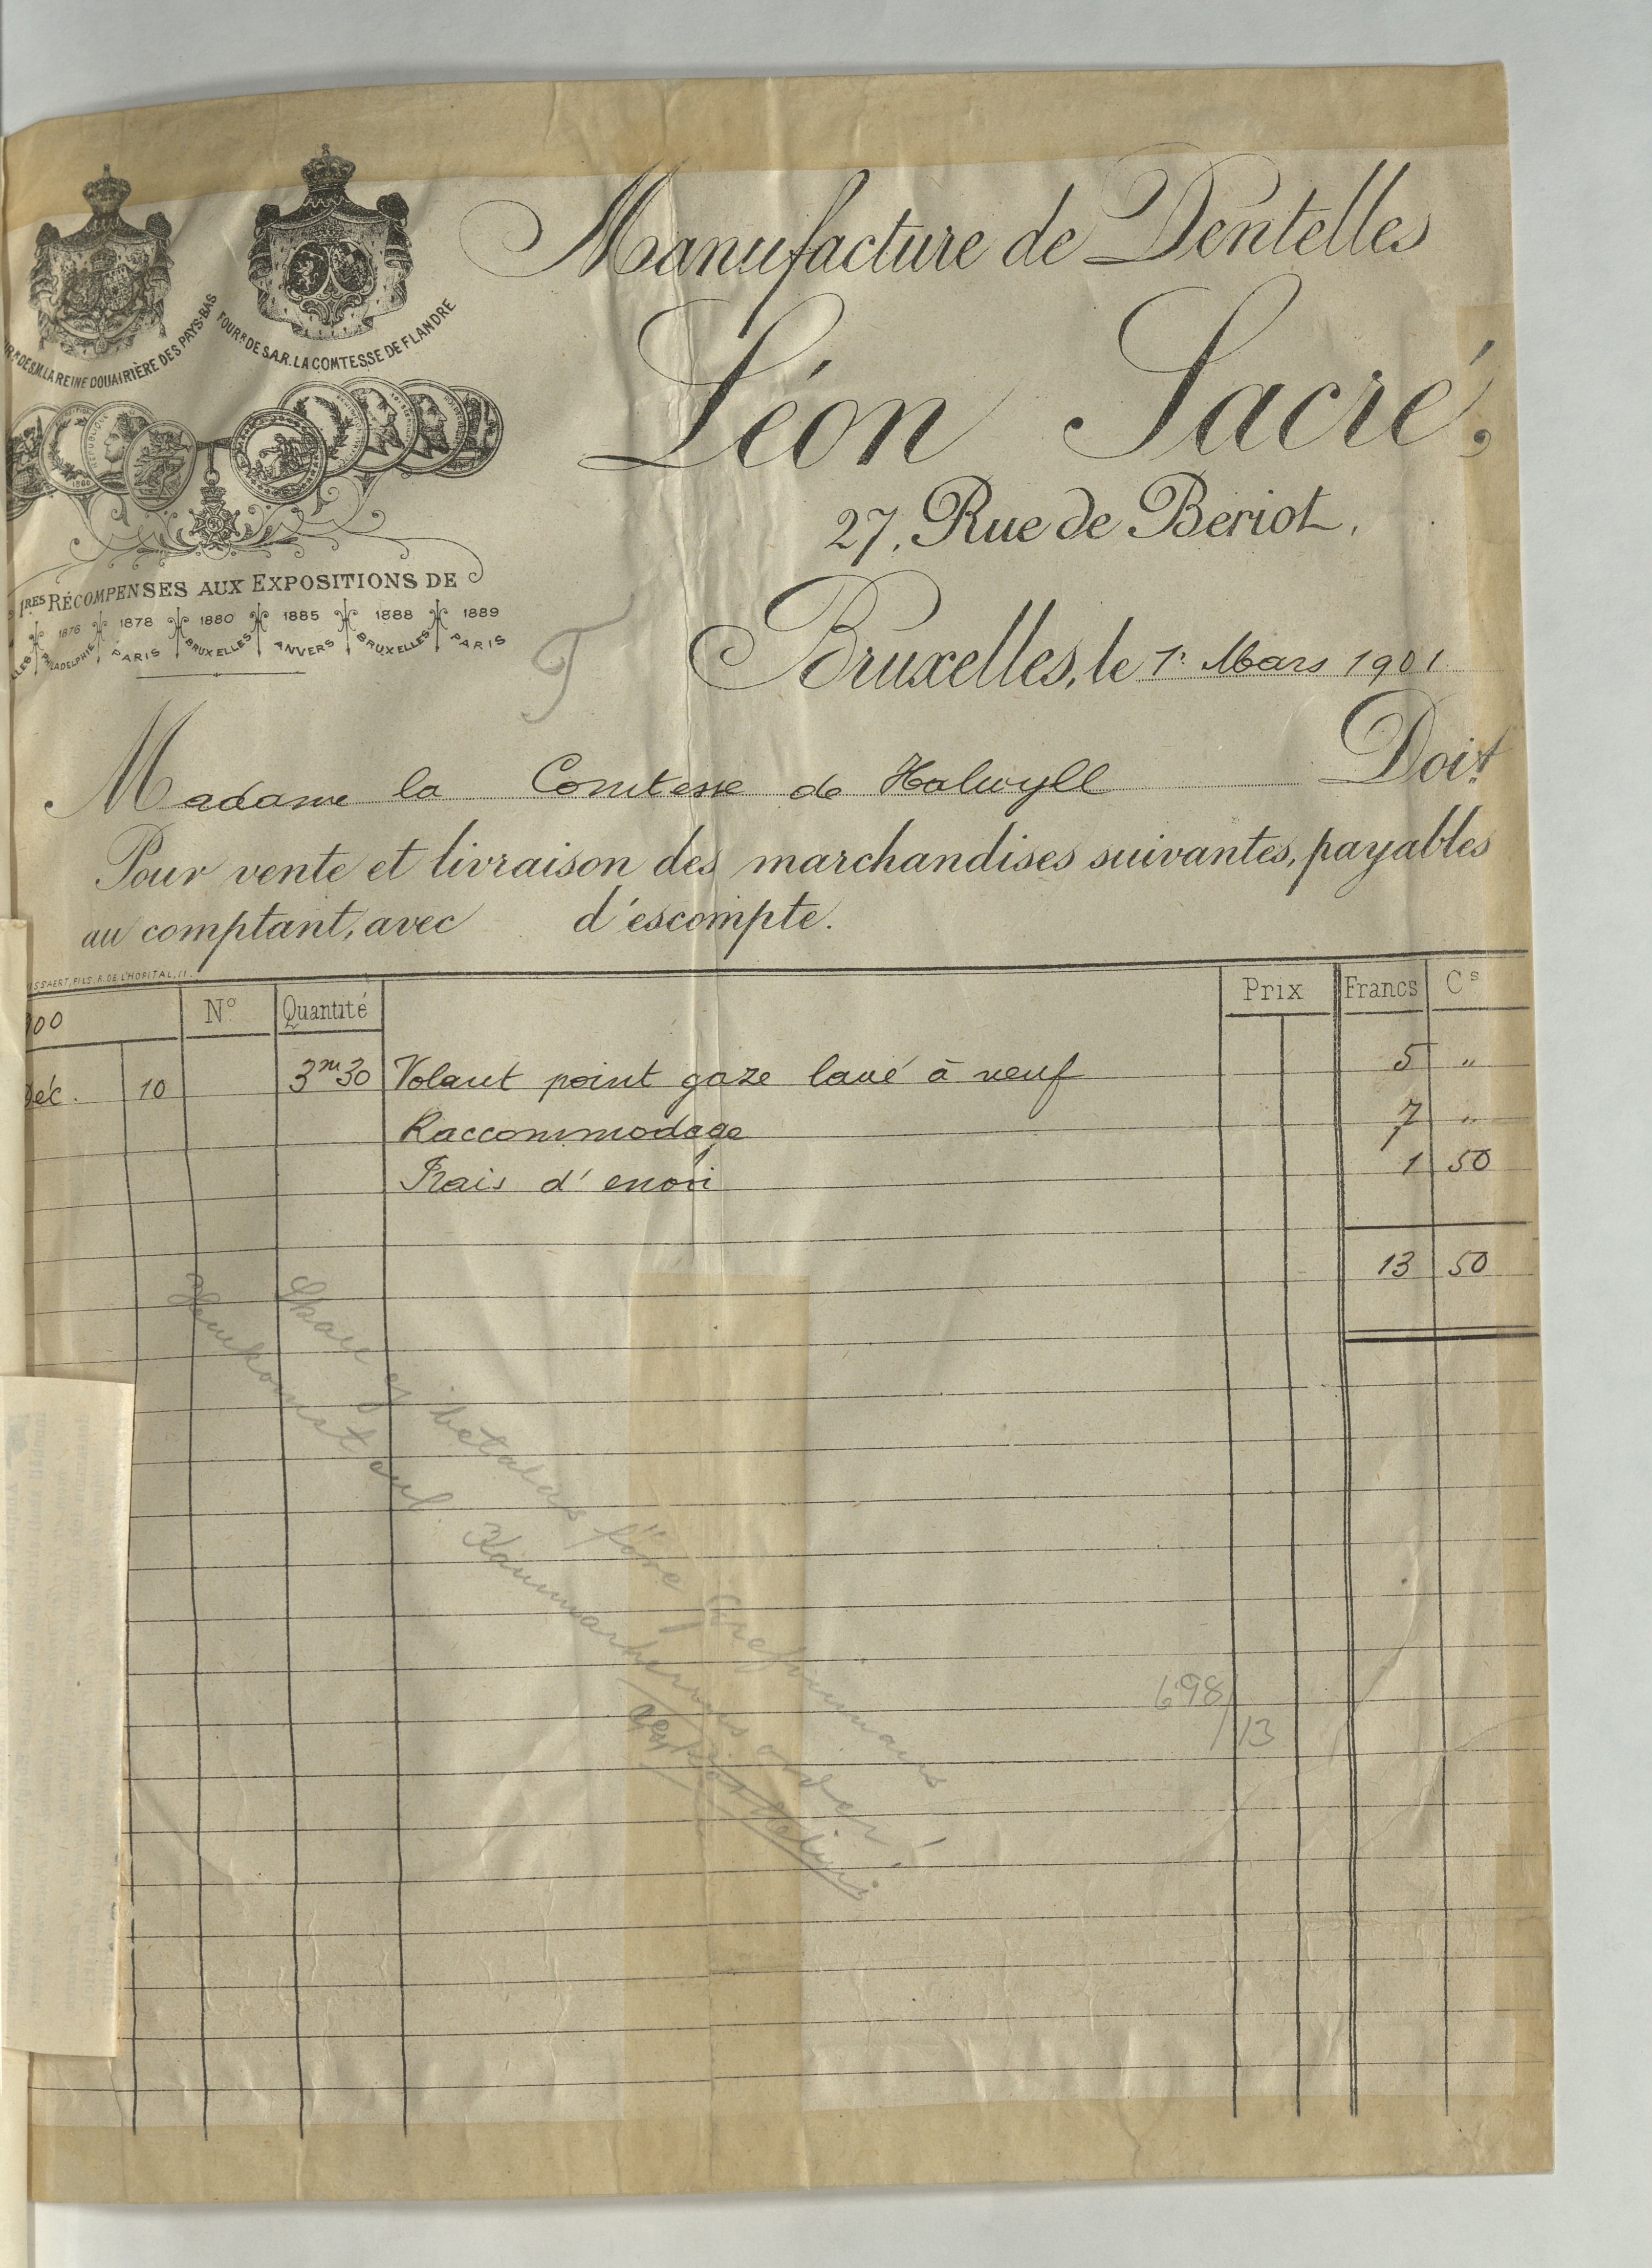 DE S.M. LA REINE DOUAIRIÈRE DES PAYS-BAS
FOURR DE S.A.R. LA COMTESSE DE FLANDRE
Manufacture de Dentelles
Léon Sacré,
27, Rue de Bériot,
1RES RÉCOMPENSES AUX EXPOSITIONS DE
1876 1878 1880 1885 1888 1889
PHILADELPHIE PARIS BRUXELLES ANVERS BRUXELLES PARIS
Bruxelles, le 1r Mars 1901
Madame la Comtesse de Halwyll Doit
Pour vente et livraison des marchandises suivantes, payables
au comptant, avec d'escompte.
FILS. R. DE L'HOPITAL, 11.
No Quantité Prix Francs Cs
Déc. 10 3m30 Volant point gaze lavé à neuf 5 "
Raccommodage 7 "
Frais d'envoi 1 50
13 50
Skall ej betalas före
698/13